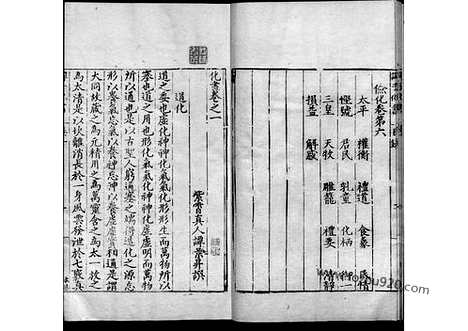 儉化卷第六
太平 權衡 禮道 食象 民情
慳號 君民 乳童 化柄 御一
三皇 天牧 雕籠 禮要 清靜
損益 解惑
化書卷之一
紫霄真人譚景昇撰
道化
道之委也虛化神神化氣氣化形形生而萬物所以
塞也道之用也形化氣氣化神神化虛虛明而萬物
所以通也是以古聖人窮通塞之端得造化之源忘
形以養氣忘氣以養神忘神以養虛虛實相通是謂
大同故藏之為元精用之為萬靈含之為太一放之
為太清是以坎離消長於一身風雲發泄於七竅真